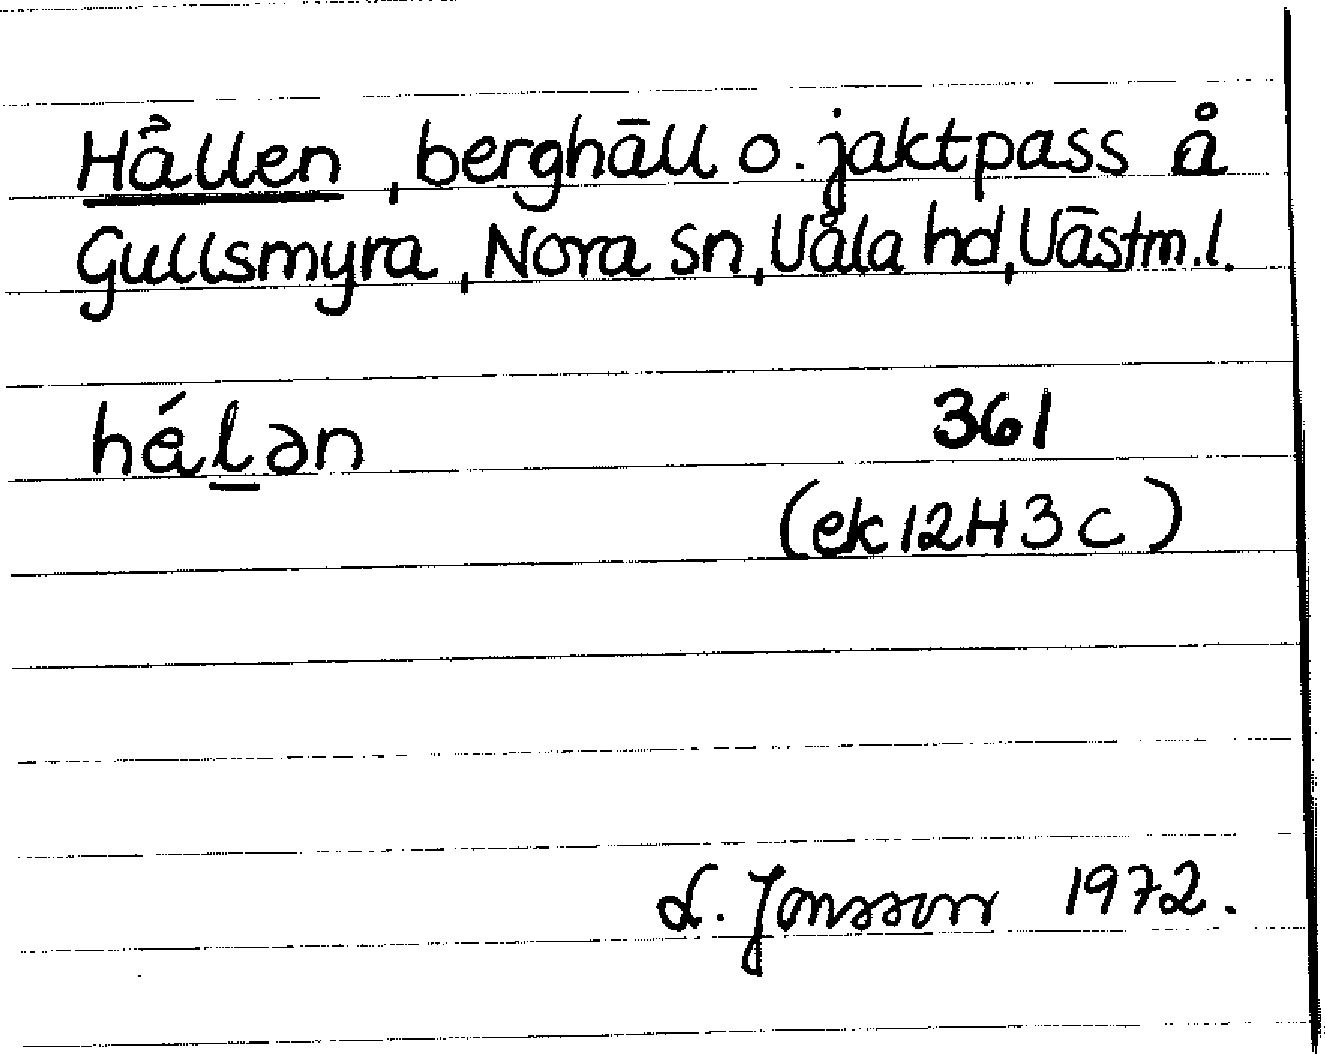 Hällen, berghäll o. jaktpass å
Gullsmyra, Nora sn, Våla hd, Västm.l.
hélən 361
(ek 12H 3c)
L. Jonsson 1972.